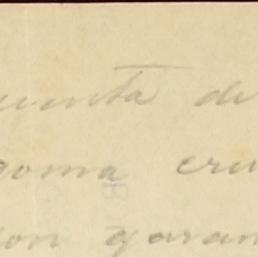 cuenta de
goma cru
con garan